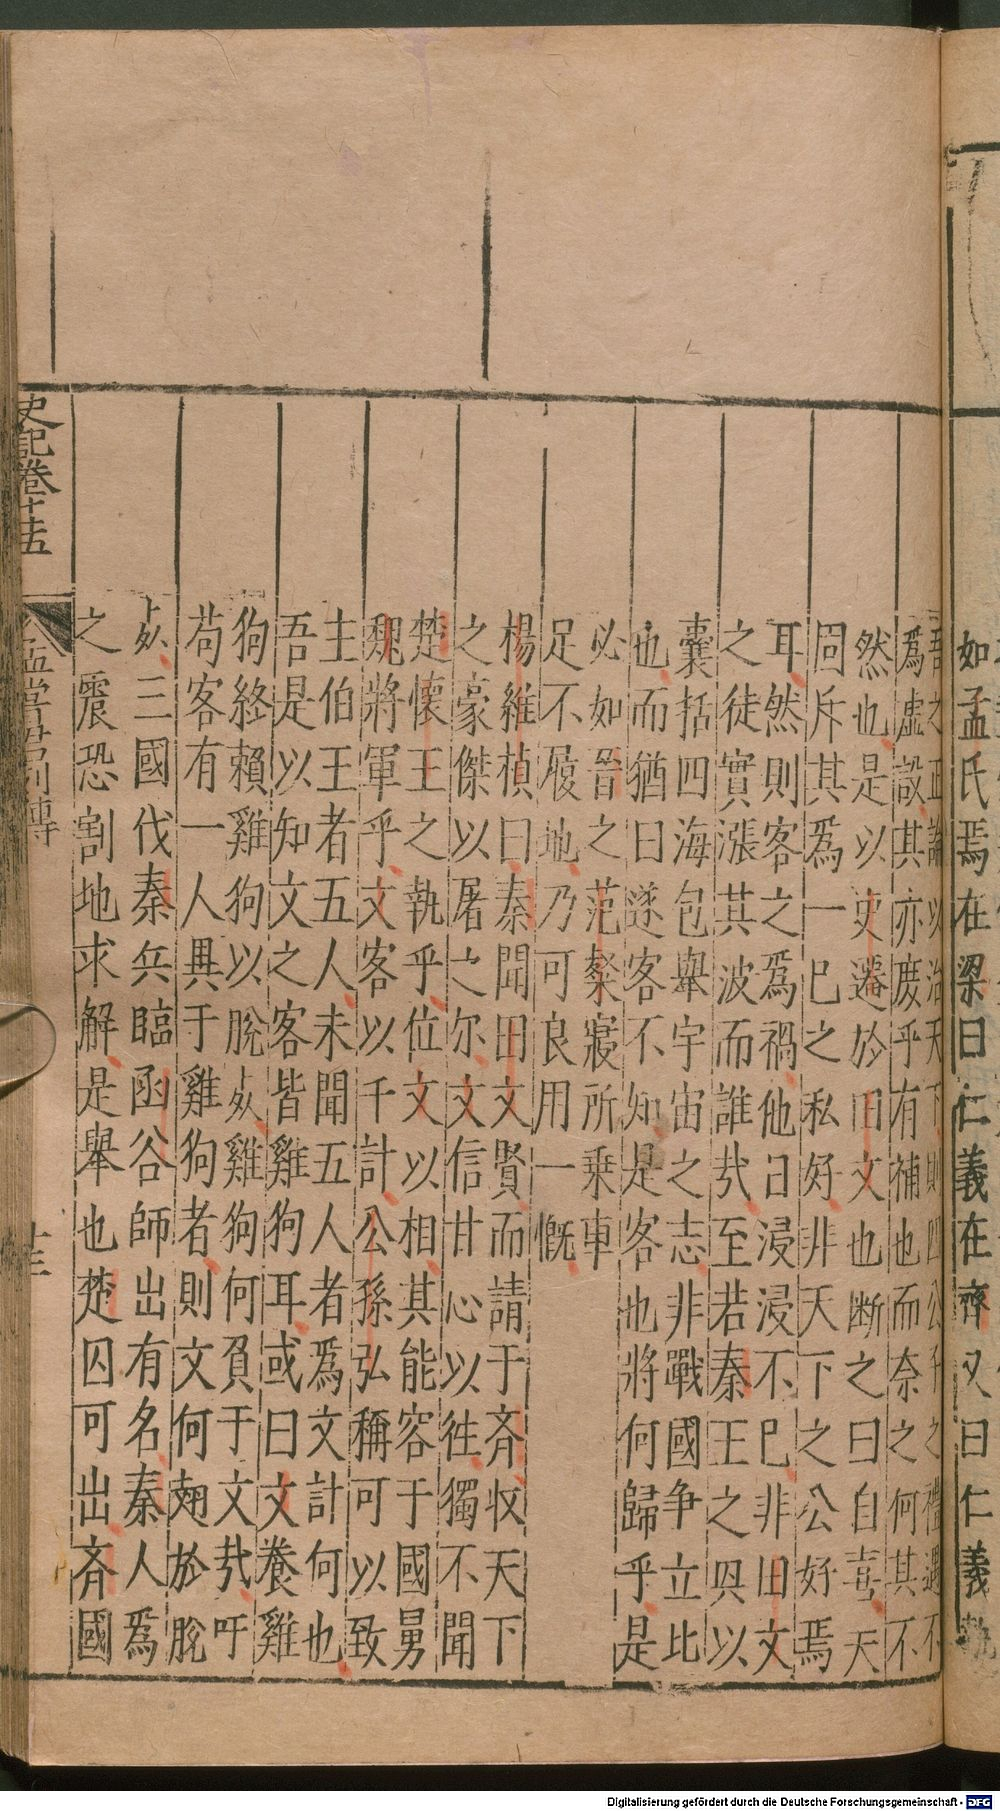 如孟氏焉在梁曰仁義在齊又曰仁義
吾之正論以治天下則四公子之禮遇不
為虛設其亦庶乎有補也而奈之何其不
然也是以史遷於田文也斷之曰自喜天
固斥其為一己之私好非天下之公好焉
耳然則客之為禍他日浸浸不已非田文
之徒實漲其波而誰㢤至若秦王之㒷以
囊括四海包舉宇宙之志非戰國争立比
也而猶曰逐客不知是客也將何歸乎是
必如晉之范粲寢所乗車
足不履地乃可良用一慨
楊維楨曰秦聞田文賢而請于斉收天下
之豪傑以屠之尔文信甘心以徃獨不聞
楚懷王之執乎位文以相其能容于國舅
魏將軍乎文客以千計公孫弘稱可以致
主伯王者五人未聞五人者為文計何也
吾是以知文之客皆雞狗耳或曰文養雞
狗終賴雞狗以脫㱾雞狗何負于文㢤吁
苟客有一人異于雞狗者則文何𧼈於脫
㱾三國伐秦兵臨函谷師出有名秦人為
之震恐割地求解是舉也楚囚可出斉國
史記卷七十五
孟嘗君列傳
十三
Digitalisierung gefördert durch die Deutsche Forschungsgemeinschaft - DFG